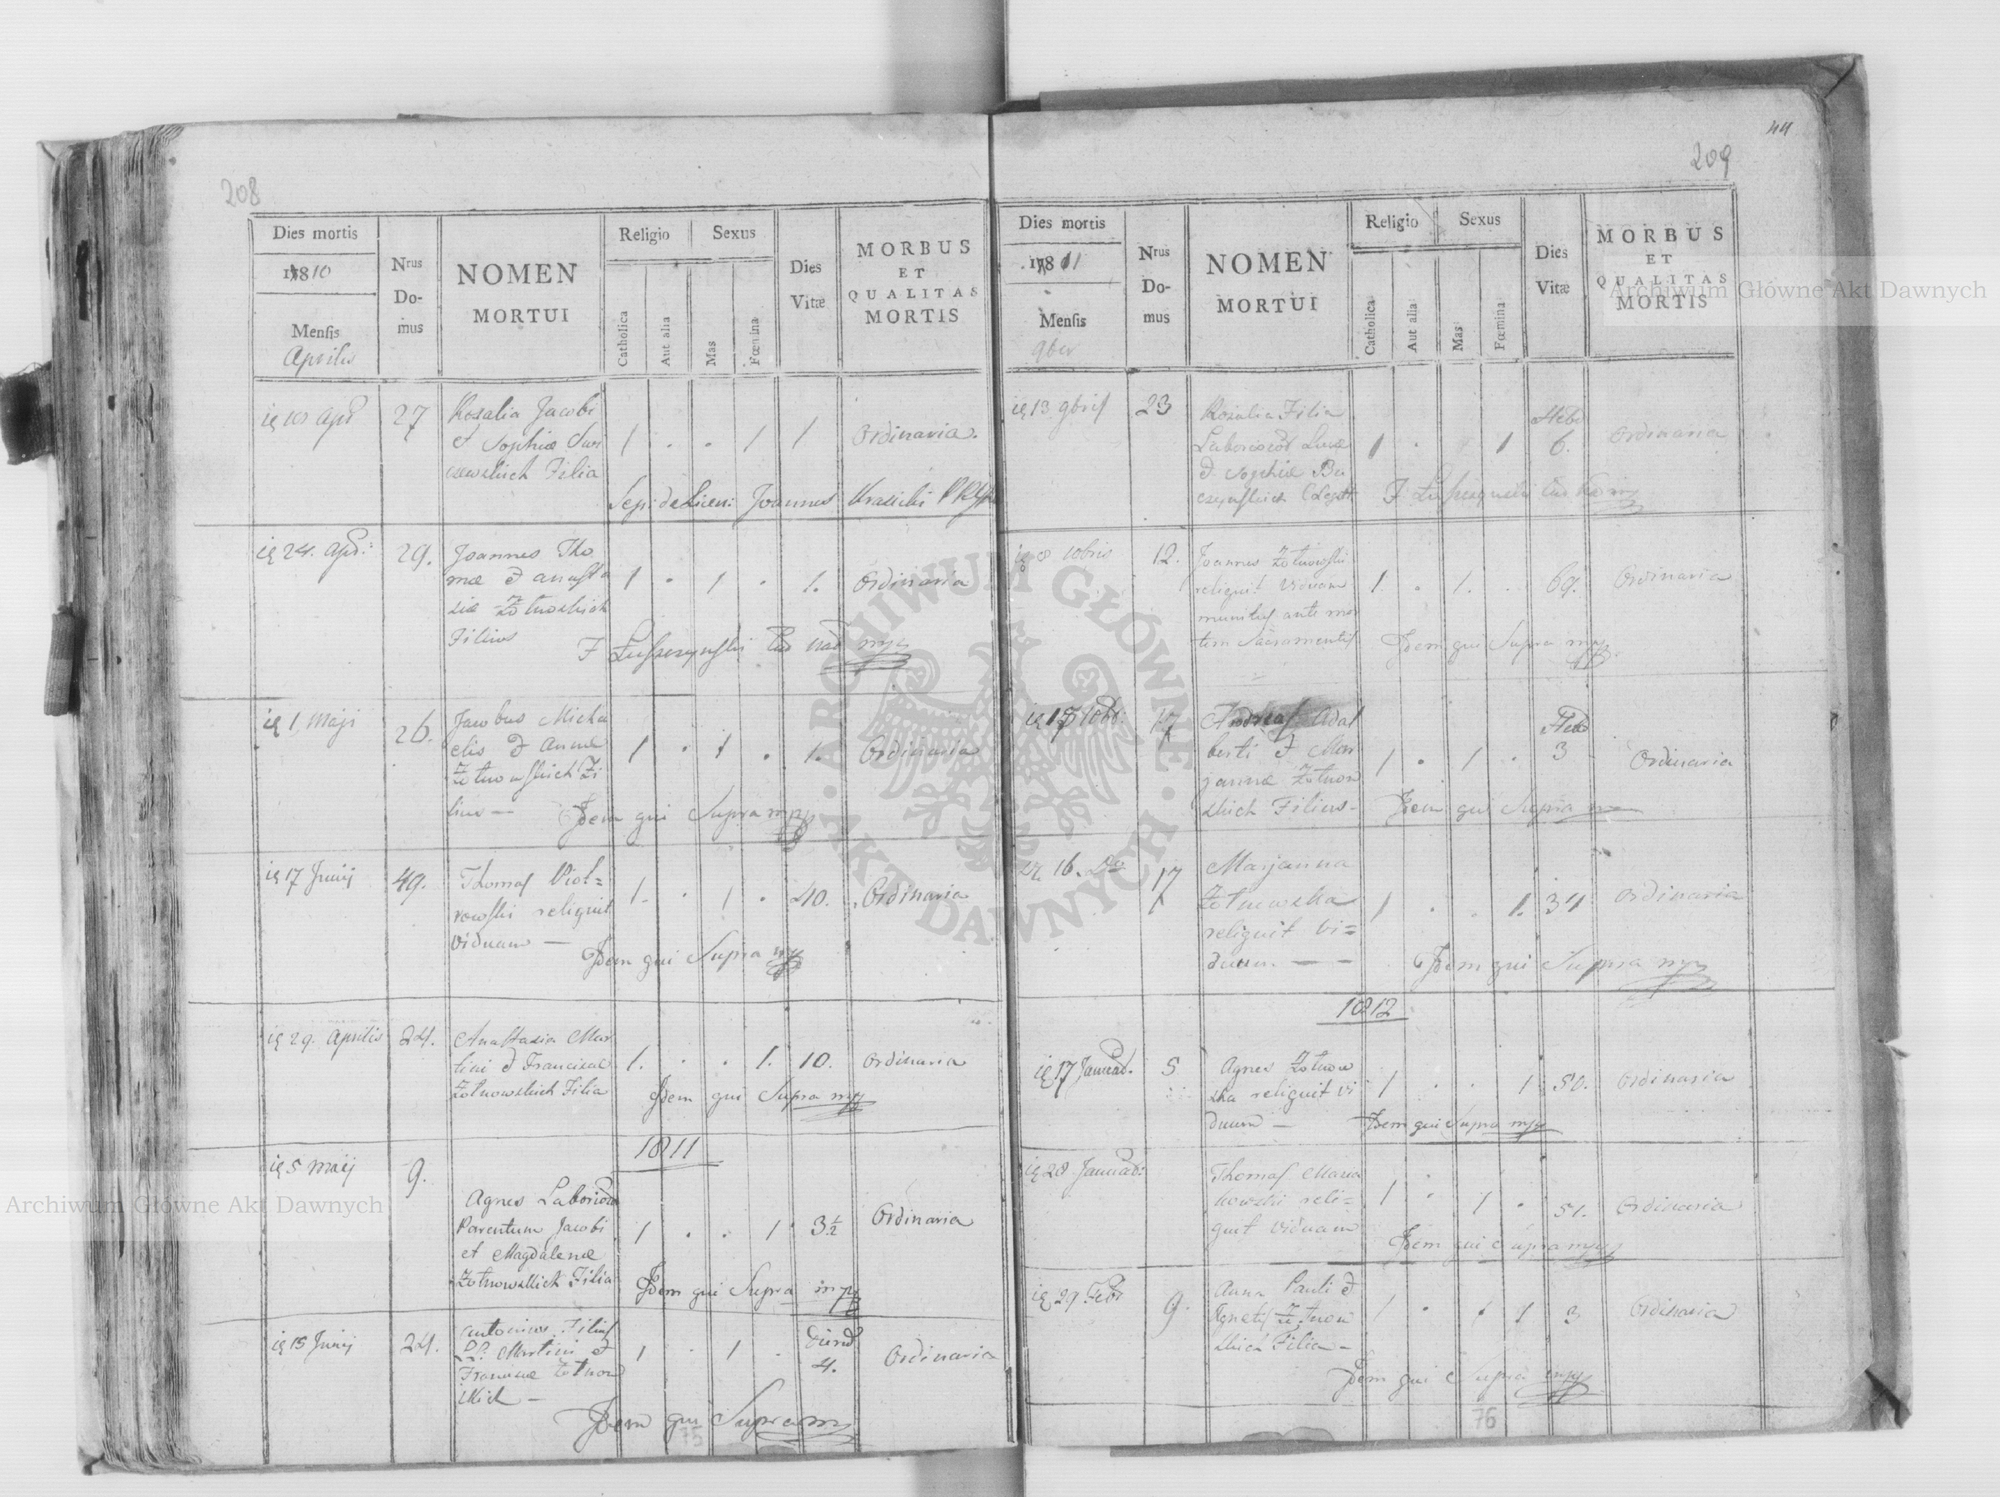 208
Dies mortis
1810
Mensis
Aprilis
Nrus
Do-
mus
NOMEN
MORTUI
Religio
Sexus
Catholica
Aut alia
Mas
Fœmina
Dies
Vitæ
MORBUS
ET
QUALITAS
MORTIS
27
Rosalia Jacobi
et Sophiæ
Filia
1 . . 1 1
Ordinaria.
Joannes Krasicki
24. Apr:
29.
Joannes Tho
mæ et Anasta
siæ Żołnowskich
Filius
1 . 1 . 1.
Ordinaria
mpp
1 Maji
26.
Jacobus Micha
elis et Annæ
Żołnowskich Fi
lius —
1 . 1 . 1.
Ordinaria
Idem qui Supra mpp
17 Junij
49.
Thomas
reliquit
viduam —
1. . 1 . 40.
Ordinaria
Idem qui Supra mpp
29. Aprilis
24.
Anastasia Mar
tini et Franciscæ
Żołnowskich Filia
1. . . 1. 10.
Ordinaria
Idem qui Supra mpp
1811
5 Maij
9.
Agnes
Parentum Jacobi
et Magdalenæ
Żołnowskich Filia
1 . . 1 3½
Ordinaria
Idem qui Supra mpp
15 Junij
24.
Antonius Filius
Martini et
Franciscæ Żołnow
skich —
1 . 1 .
4.
Ordinaria
Idem qui Supra mpp
75
44
209
Dies mortis
1811
Mensis
9ber
Nrus
Do-
mus
NOMEN
MORTUI
Religio
Sexus
Catholica
Aut alia
Mas
Fœmina
Dies
Vitæ
MORBUS
ET
QUALITAS
MORTIS
13 9bris
23
Rosalia Filia
Lucæ
et Sophiæ Bu
czynskich
1 . . 1
Hebd
6.
Ordinaria
8 10bris
12.
Joannes Żołnowski
reliquit viduam
munitus ante mor
tem Sacramentis
1. . 1. . 69.
Ordinaria
Idem qui Supra mpp
17
Andreas Adal
berti et Mar
jannæ Żołnow
skich Filius —
1 . 1 .
Hebd
3
Ordinaria
Idem qui Supra
16.
17
Marjanna
Żołnowska
reliquit vi=
duum — —
1 . . 1. 34
Ordinaria
Idem qui Supra mpp
1812
17 Januar.
5
Agnes Żołnow
ska reliquit vi
duum —
1 . . 1 50.
Ordinaria
Idem qui Supra mpp
28 Januar:
Thomas
reli=
quit viduam
1 . 1 . 51.
Ordinaria
Idem qui Supra mpp
29 Febr
9.
Anna Pauli et
Agnetis Żołnow
skich Filia —
1 . 1 3
Ordinaria
Idem qui Supra mpp
76
Archiwum Główne Akt Dawnych
Archiwum Główne Akt Dawnych
ARCHIWUM GŁÓWNE
AKT DAWNYCH